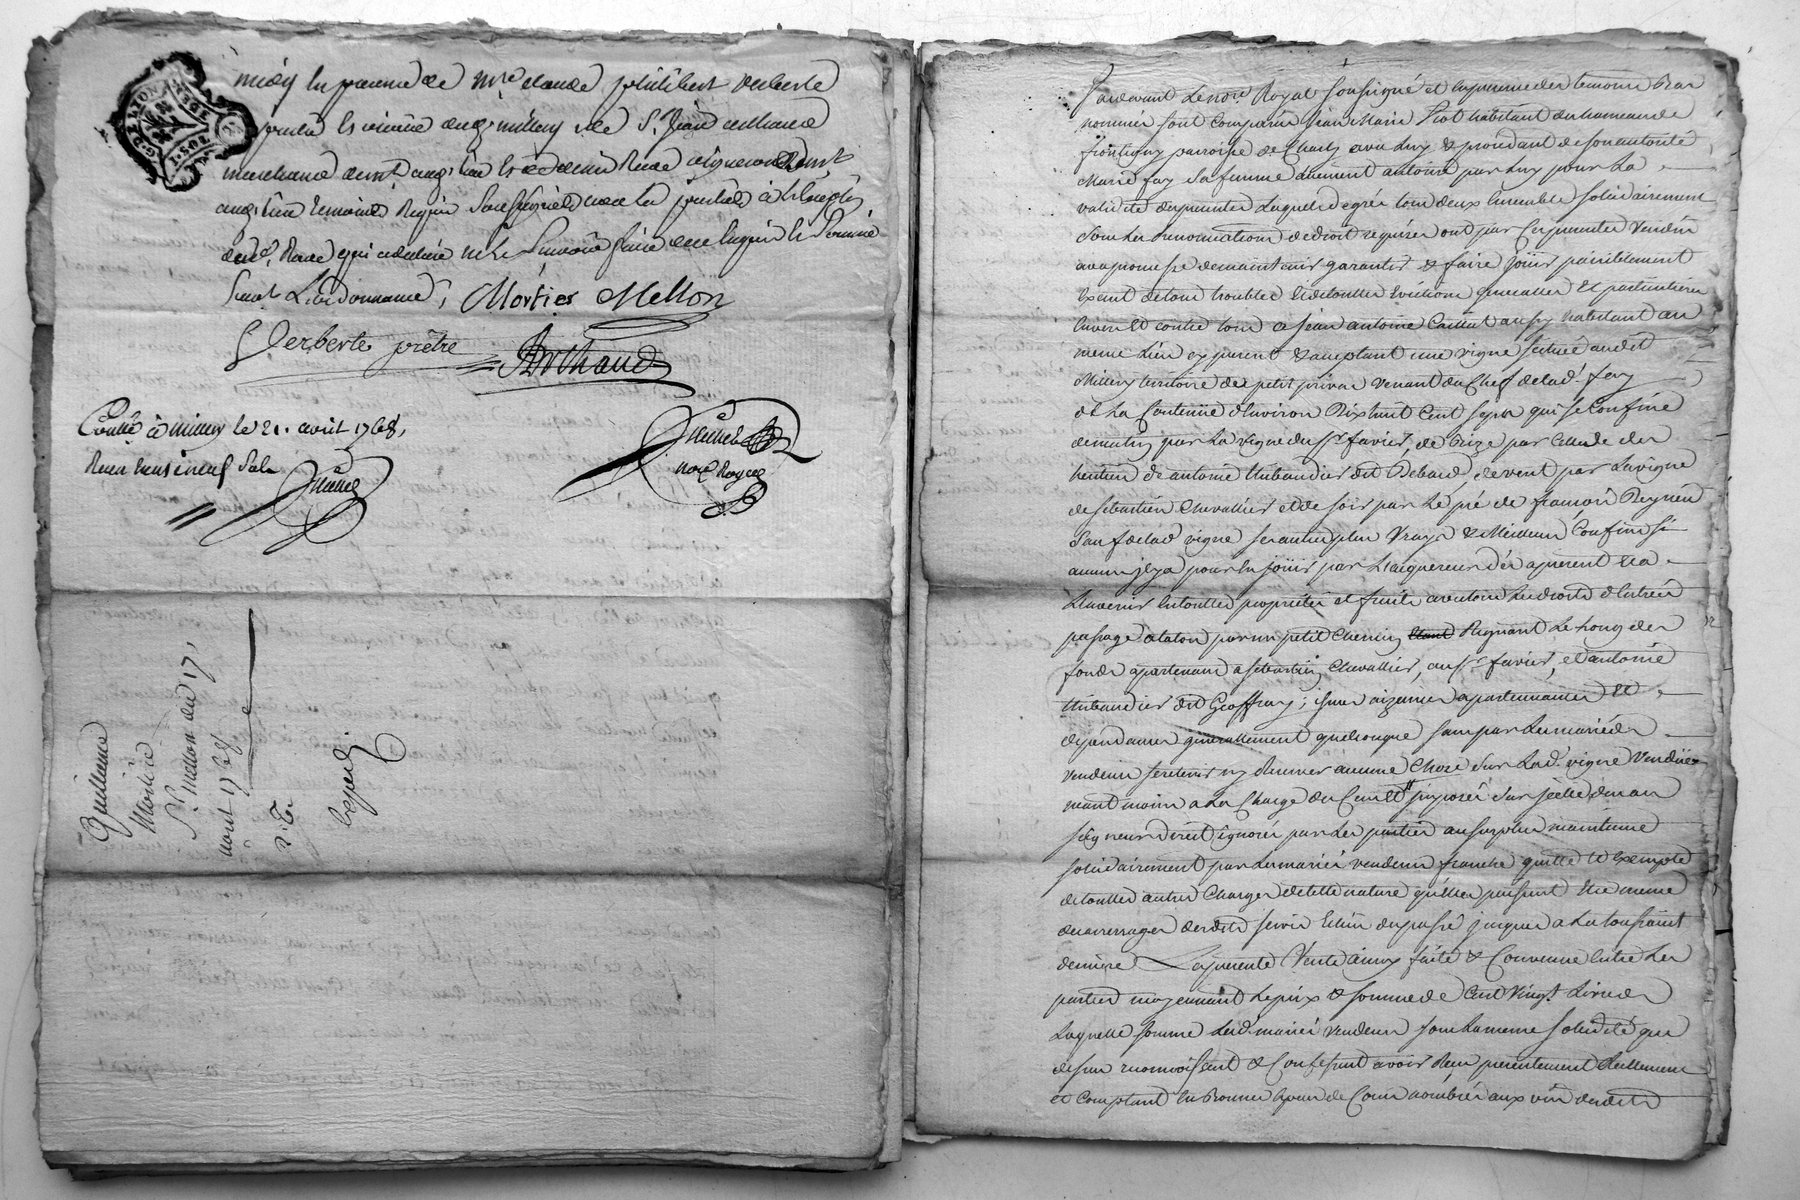 G. DE LYON
1. SOL
midy en presence de mre claude philibert derberte
prestre vicaire dud. millery & de Sr. Jean
marchand demt. aud. lieu
aud. lieu temoins requis soussignés avec les parties à
qui a declaré ne le sçavoir faire de ce enquis & sommé
suivt. L'ordonnance, Mortier Mellon
Derberte prêtre Arthaud
Contlé à millery le 21. avril 1768,
Reçu sols
nore Royal
Guillaume
Mortier
Sr. mellon du 17
aout 1768
Expedié
Pardevant Le nore. Royal soussigné et en presence des temoins Bas
nommés sont comparus jean Marie Viot habitant du hameau de
frontigny parroisse de Charly avec luy & procedant de son autorité
Marie fay sa femme duement autorisé par luy pour La
validité des presentes Lesquels de gré tous deux Ensemble solidairement
sous Les renonciations de droit requises ont par Ces presentes Vendu
avec promesse de maintenir garantir & faire jouir paisiblement
Exent de tous troubles Et de touttes Evictions generalles Et particulieres
Envers Et contre tous a jean antoine Caillat aussy habitant au
meme Lieu cy present & acceptant une vigne scituée audit
Millery territoire de petit privas venant du Chef de lad. fay
de La Contenüe d'Environ Dix huit Cent seps qui se Confine
de matin par La vigne du Sr. favier, de Bize par Celle des
heritiers de antoine thibaudier dit Rebaud, de vent par La vigne
de sebastien Chevallier et de soir par Le pré de françois Peynein
sauf de lad. vigne ses autres plus Vrays & Meilleurs Confins si
aucuns jl y a pour En jouir par L'acquereur dès apresent Et a
L'avenir En touttes proprietés et fruits avec tous Les droits d'Entrée
passage a talon par un petit Chemin Regnant Le Long des
fonds apartenants a sebastien Chevallier, au Sr. favier, et antoine
thibaudier dit Geoffray; ses aizances apartenances Et
dependances generallement quelconques sans par Les mariés
vendeurs se retenir ny Reserver aucune Chose sur Lad. vigne Vendüe
neant moins a La Charge du Cens Et jmposés sur jcelle deu au
seigneur direct ignoré par Les parties au surplus maintenue
solidairement par Les mariés vendeurs franche quitte Et Exempte
de touttes autres Charges de telle nature qu'Elles puissent Etre meme
des arrerages desdits servis Echus du passé jusques a La toussaint
derniere La presente Vente ainsy faite & Convenue Entre Les
parties moyennant Le prix & somme de Cent Vingt Livres
Laquelle somme Lesd. mariés vendeurs sous La meme solidité que
dessus reconnoissent & Confessent avoir Reçu presentement Reellement
et Comptant En Bonnes Especes de Cours nombrées aux vüe desdits